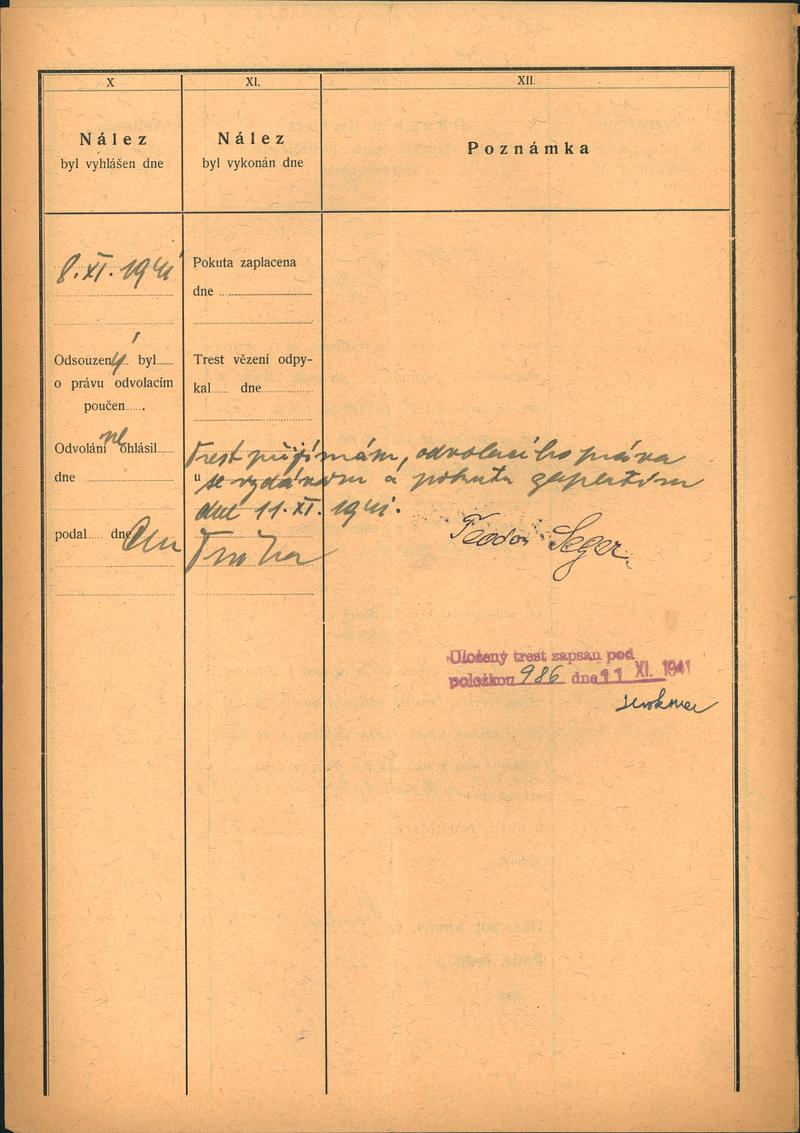 X
Nález
byl vyhlášen dne
8. XI. 1941
Odsouzený byl
o právu odvolacím
poučen
Odvolání neohlásil
dne
podal dne
XI.
Nález
byl vykonán dne
Pokuta zaplacena
dne
Trest vězení odpy-
kal dne
XII.
Poznámka
Trest přijímám, odvolacího práva
se vzdávám a pokutu zaplatím
dne 11. XI. 1941.
Teodor Seger
Uložený trest zapsán pod
položkou 986 dne 11 XI. 1941